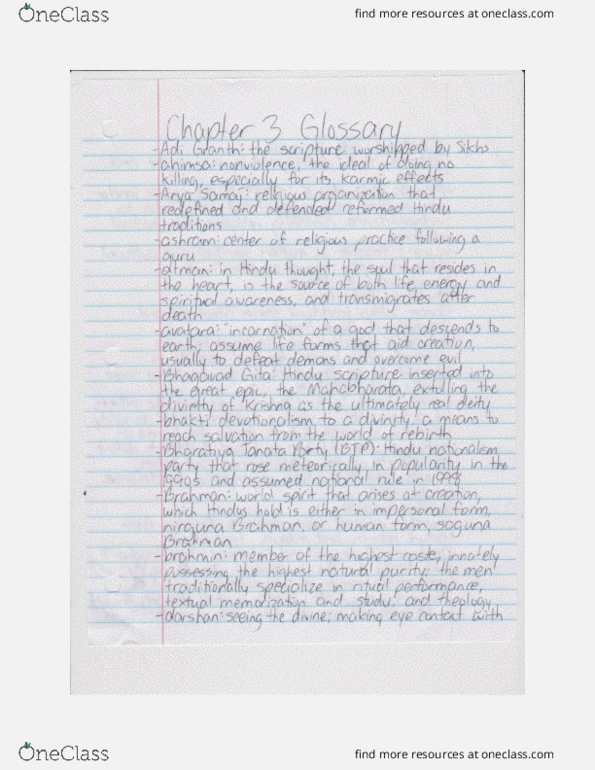 OneClass
find more resources at oneclass.com
Chapter 3 Glossary
-Adi Granth: the scripture worshipped by Sikhs
-ahimsa: nonviolence, the ideal of doing no
killing, especially for its karmic effects
-Arya Samaj: religious organization that
redefined and defended reformed Hindu
traditions
-ashram: center of religious practice following a
guru
-atman: in Hindu thought, the soul that resides in
the heart, is the source of both life energy and
spiritual awareness, and transmigrates after
death
-avatara: "incarnation" of a god that descends to
earth; assume life forms that aid creation,
usually to defeat demons and overcome evil
-Bhagavad Gita: Hindu scripture inserted into
the great epic, the Mahabharata, extulling the
divinity of Krishna as the ultimately real deity
-bhakti: devotionalism to a divinity, a means to
reach salvation from the world of rebirth
-Bharatiya Janata Party (BJP): Hindu nationalism
party that rose meteorically in popularity in the
1990s and assumed national rule in 1998
-Brahman: world spirit that arises at creation,
which Hindus hold is either in impersonal form,
nirguna Brahman, or human form, saguna
Brahman
-brahmin: member of the highest caste, innately
possessing the highest natural purity; the men
traditionally specialize in ritual performance,
textual memorization and study, and theology
-darshan: seeing the divine; making eye contact with
OneClass
find more resources at oneclass.com